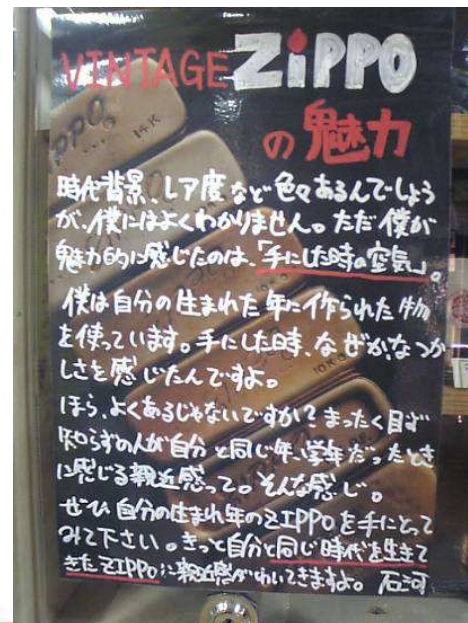 VINTAGE ZiPPO
の魅力
時代背景、レア度など色々あるんでしょう
が、僕にはよくわかりません。ただ僕が
魅力的に感じたのは、「手にした時の空気」。
僕は自分の生まれた年に作られた物
を使っています。手にした時、なぜか、なつか
しさを感じたんですよ。
ほら、よくあるじゃないですか?まったく見ず
知らずの人が自分と同じ年、学年だったとき
に感じる親近感って。そんな感じ。
ぜひ自分の生まれ年のZIPPOを手にとって
みて下さい。きっと自分と同じ時代を生きて
きたZIPPOに親近感がわいてきますよ。
14K
10K